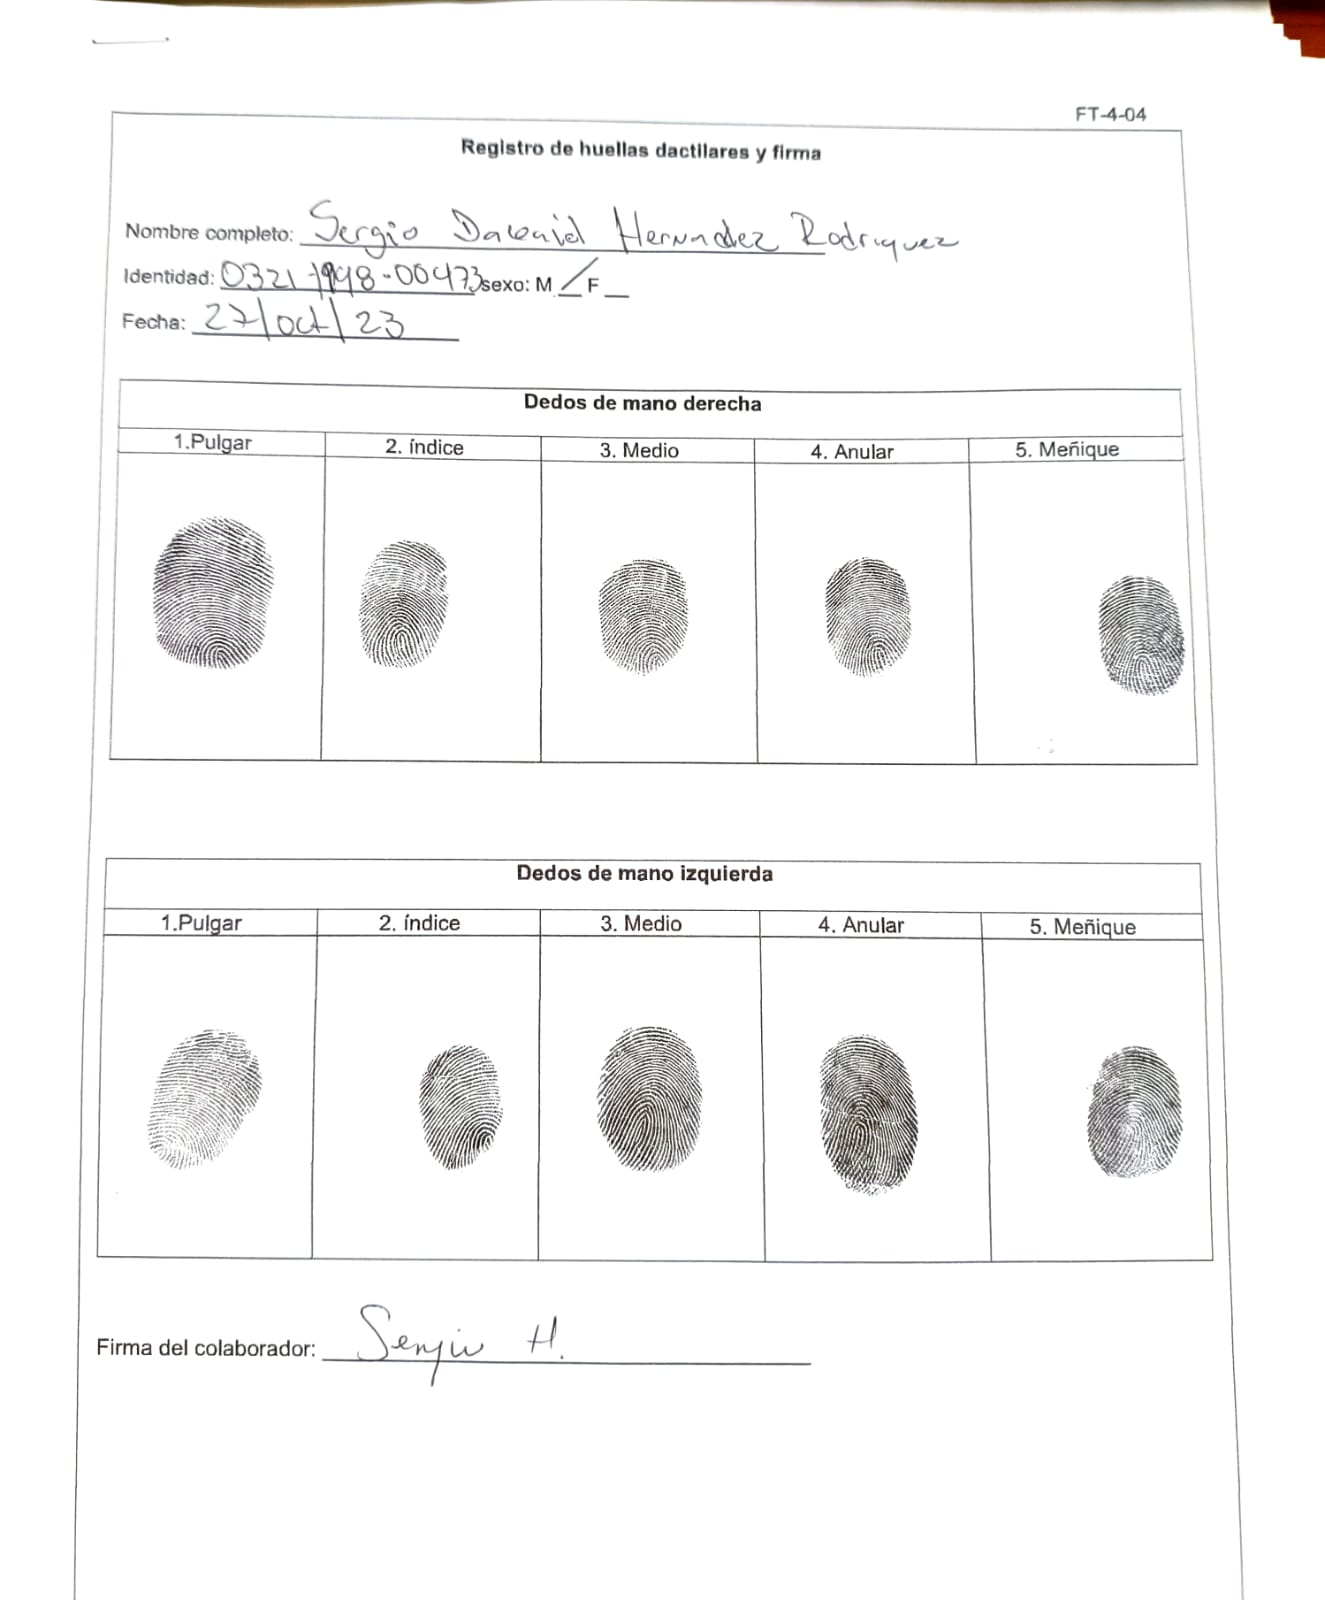 FT-4-04
Registro de huellas dactilares y firma
Nombre completo: Sergio Hernandez Rodriquez
Identidad: 0321-1998-00473 sexo: M / F
Fecha: 27/oct/23
Dedos de mano derecha
1.Pulgar 2. índice 3. Medio 4. Anular 5. Meñique
Dedos de mano izquierda
1.Pulgar 2. índice 3. Medio 4. Anular 5. Meñique
Firma del colaborador: Sergio H.